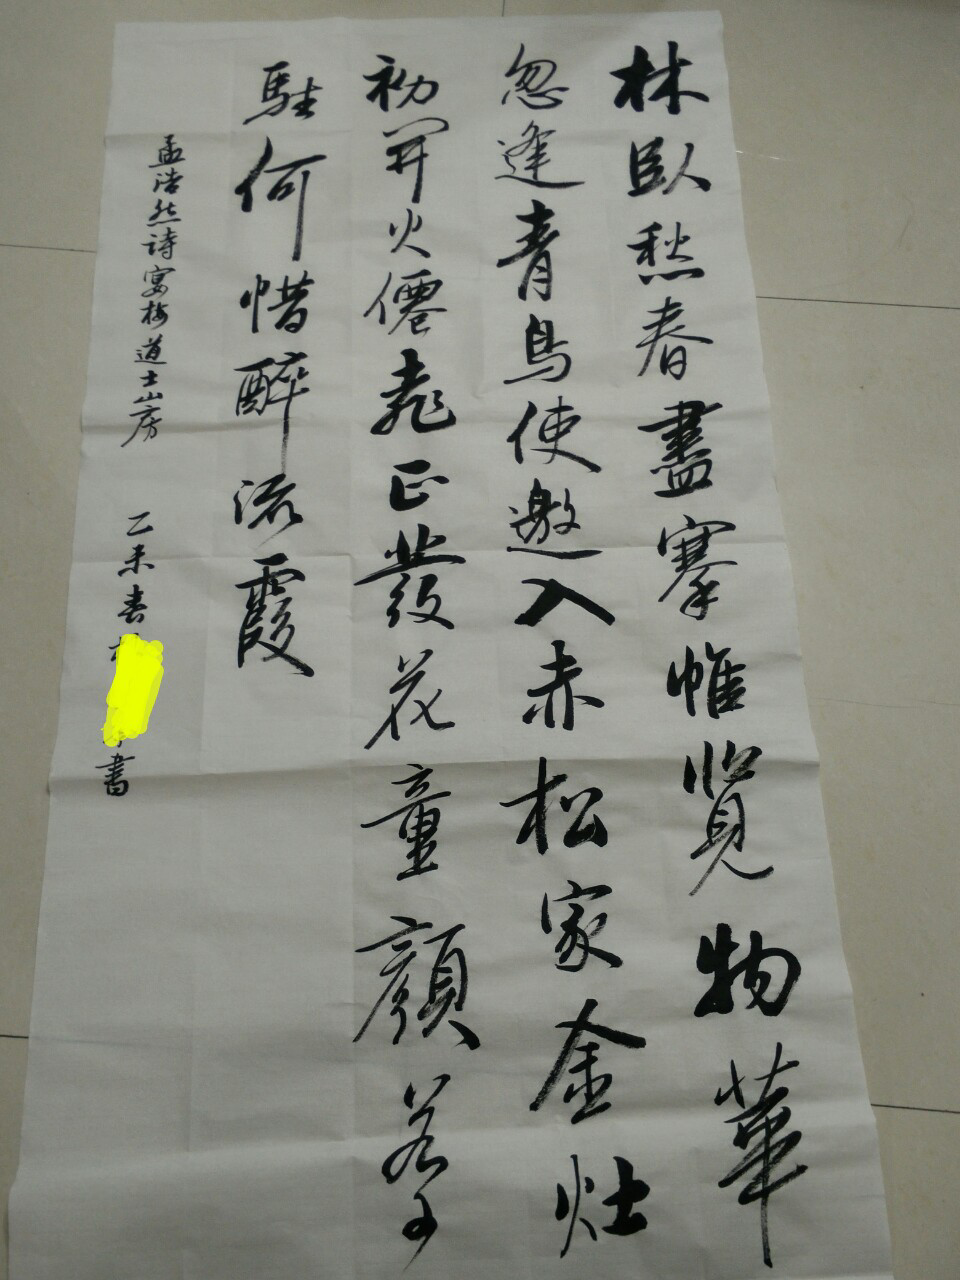 林臥愁春盡搴帷覽物華
忽逢青鳥使邀入赤松家金灶
初開火僊桃正發花童顏若可
駐何惜醉流霞
孟浩然詩宴梅道士山房 乙未春 書